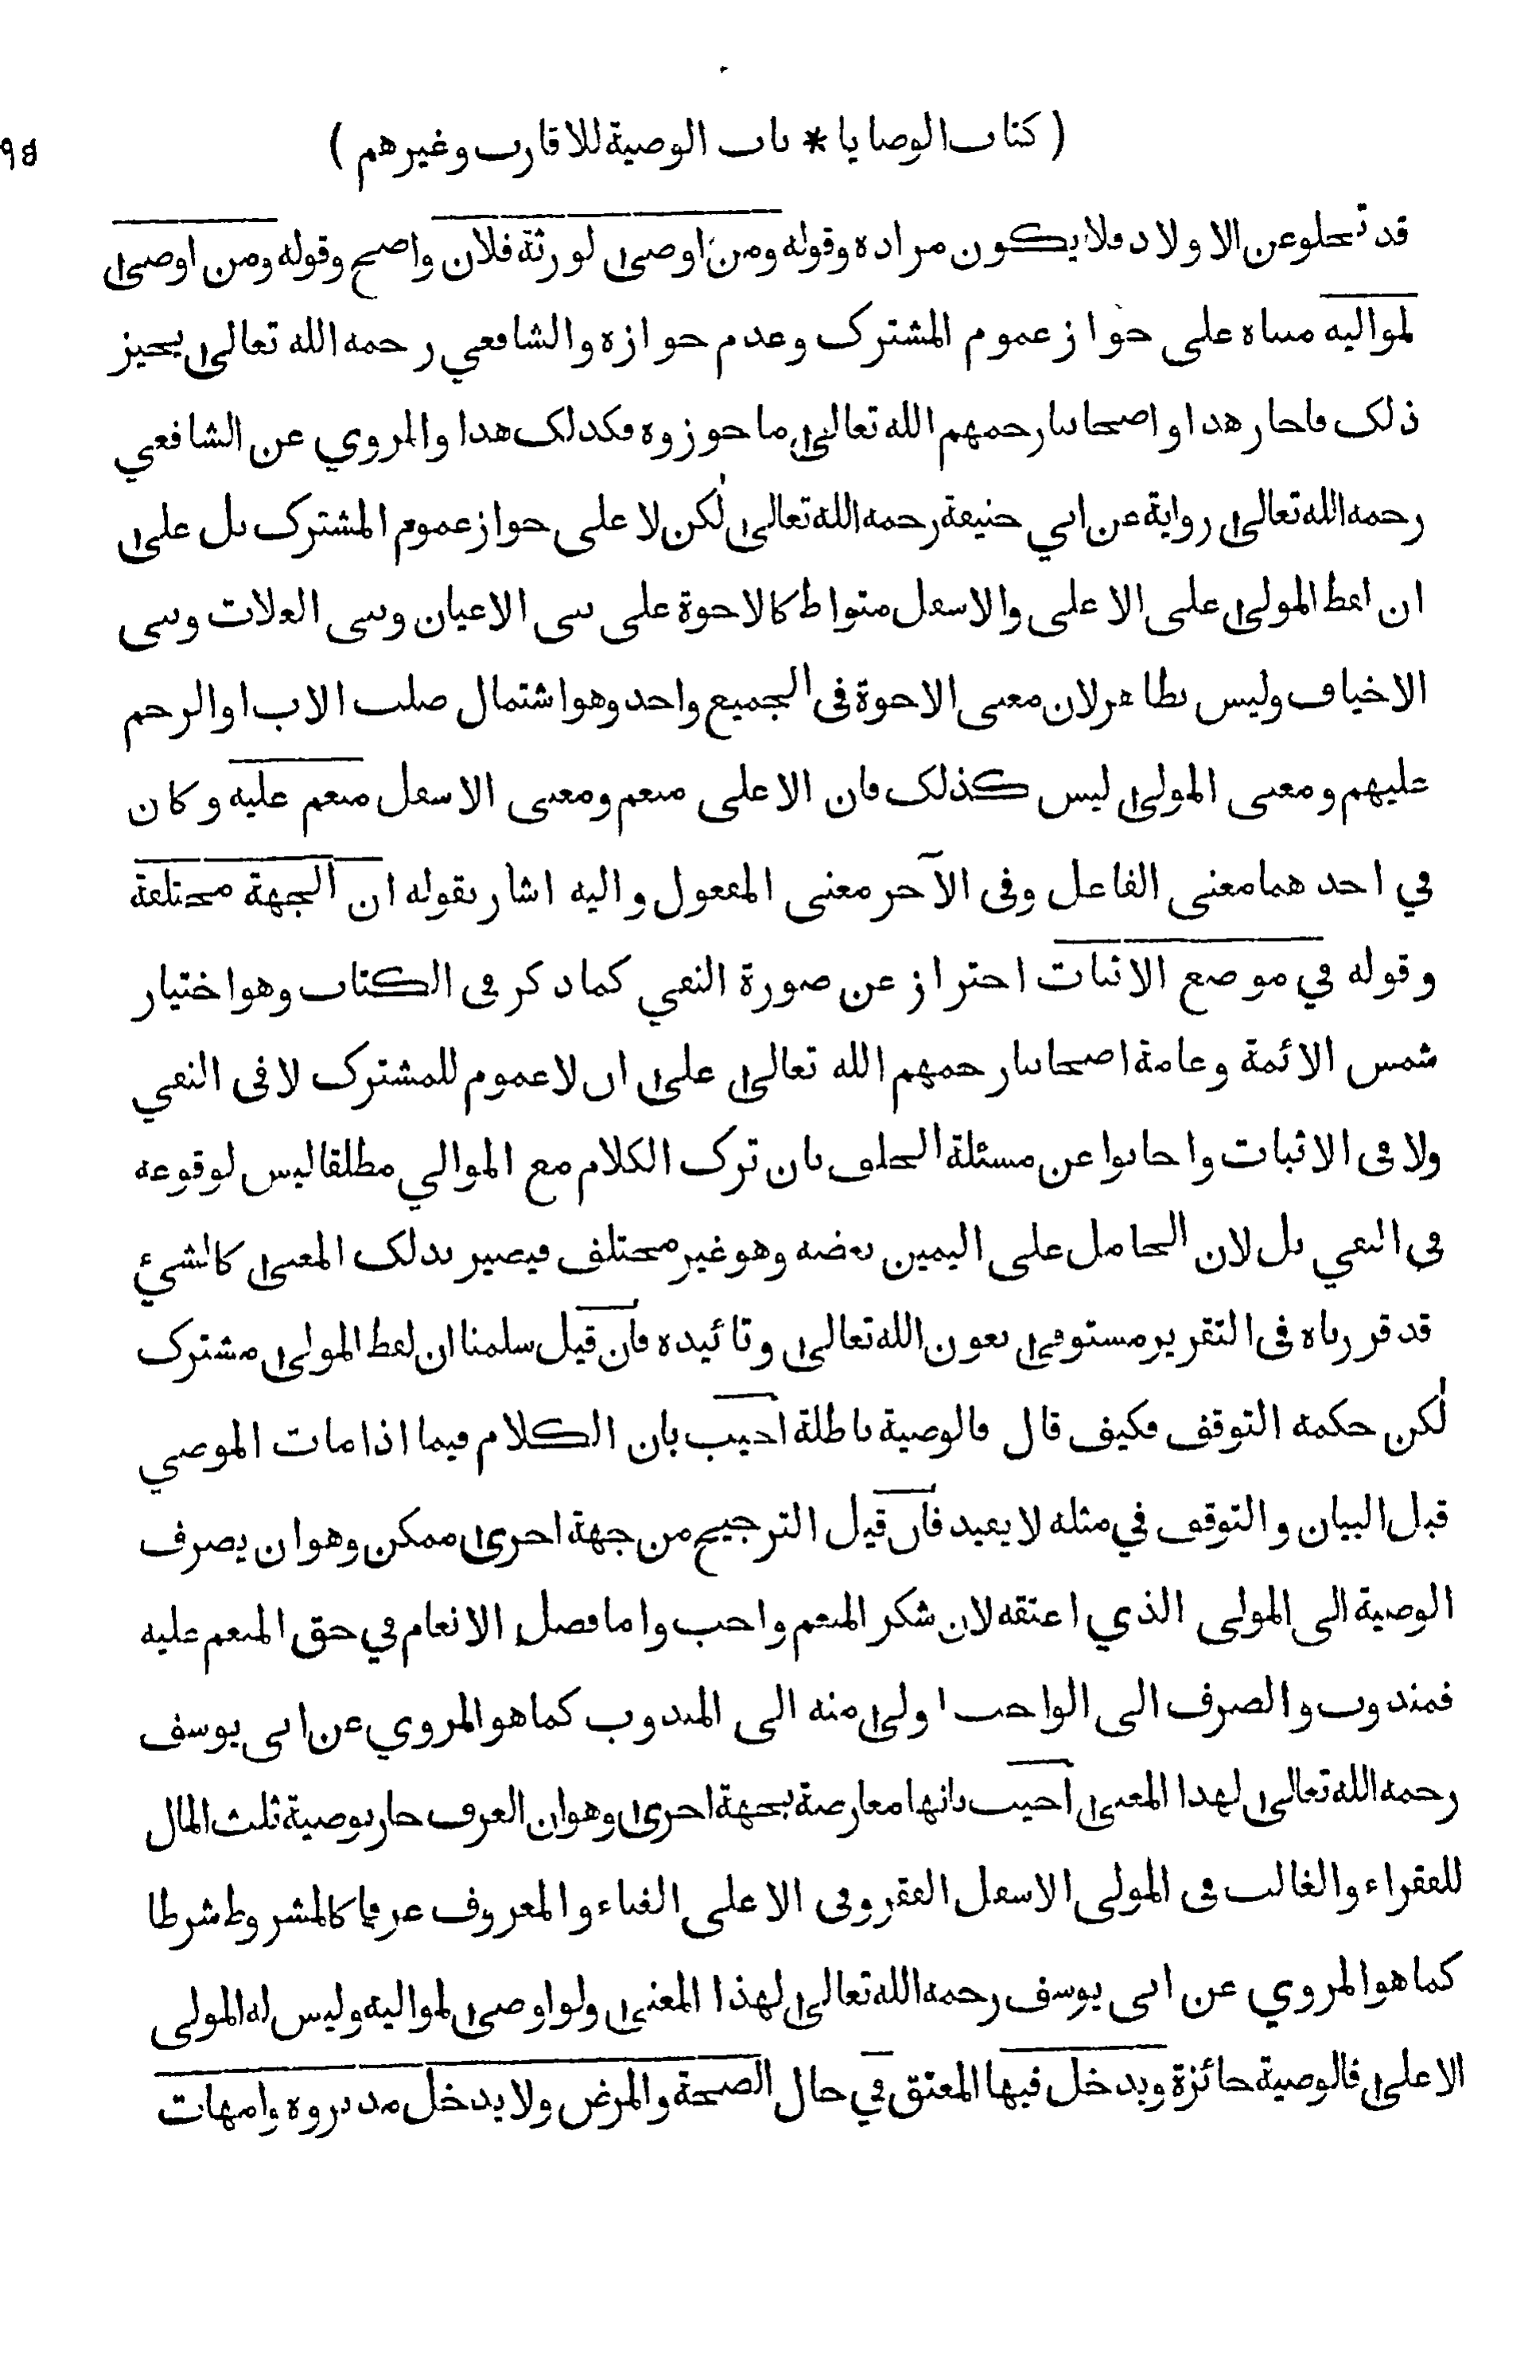 ( كتاب الوصايا * باب الوصية للاقارب وغيرهم )
قد تخلو عن الاولاد فلا يكون مراده وقوله ومن اوصى لورثة فلان واضح وقوله ومن اوصى
لمواليه مبناه على جواز عموم المشترك وعدم جوازه والشافعي رحمه الله تعالى يجيز
ذلك فاجاز هذا واصحابنا رحمهم الله تعالى ما جوزوه فكذلك هذا والمروي عن الشافعي
رحمه الله تعالى رواية عن ابي حنيفة رحمه الله تعالى لكن لا على جواز عموم المشترك بل على
ان لفظ المولى على الاعلى والاسفل متواط كالاخوة على بني الاعيان وبني العلات وبني
الاخياف وليس بظاهر لان معنى الاخوة في الجميع واحد وهو اشتمال صلب الاب او الرحم
عليهم ومعنى المولى ليس كذلك فان الاعلى منعم ومعنى الاسفل منعم عليه وكان
في احدهما معنى الفاعل وفي الآخر معنى المفعول واليه اشار بقوله ان الجهة مختلفة
وقوله في موضع الاثبات احتراز عن صورة النفي كما ذكر في الكتاب وهو اختيار
شمس الائمة وعامة اصحابنا رحمهم الله تعالى على ان لا عموم للمشترك لا في النفي
ولا في الاثبات واجابوا عن مسئلة الحلف بان ترك الكلام مع الموالي مطلقا ليس لوقوعه
في النفي بل لان الحامل على اليمين بغضه وهو غير مختلف فيصير بذلك المعنى كالشيء
قد قررناه في التقرير مستوفى بعون الله تعالى وتائيده فان قيل سلمنا ان لفظ المولى مشترك
لكن حكمه التوقف فكيف قال فالوصية باطلة اجيب بان الكلام فيما اذا مات الموصي
قبل البيان والتوقف في مثله لا يفيد فان قيل الترجيح من جهة اخرى ممكن وهو ان يصرف
الوصية الى المولى الذي اعتقه لان شكر المنعم واجب واما فضل الانعام في حق المنعم عليه
فمندوب والصرف الى الواجب اولى منه الى المندوب كما هو المروي عن ابي يوسف
رحمه الله تعالى لهذا المعنى اجيب بانها معارضة بجهة اخرى وهو ان العرف جار بوصية ثلث المال
للفقراء والغالب في المولى الاسفل الفقر وفي الاعلى الغناء والمعروف عرفا كالمشروط شرطا
كما هو المروي عن ابي يوسف رحمه الله تعالى لهذا المعنى ولو اوصى لمواليه وليس له المولى
الاعلى فالوصية جائزة ويدخل فيها المعتق في حال الصحة والمرض ولا يدخل مدبروه وامهات